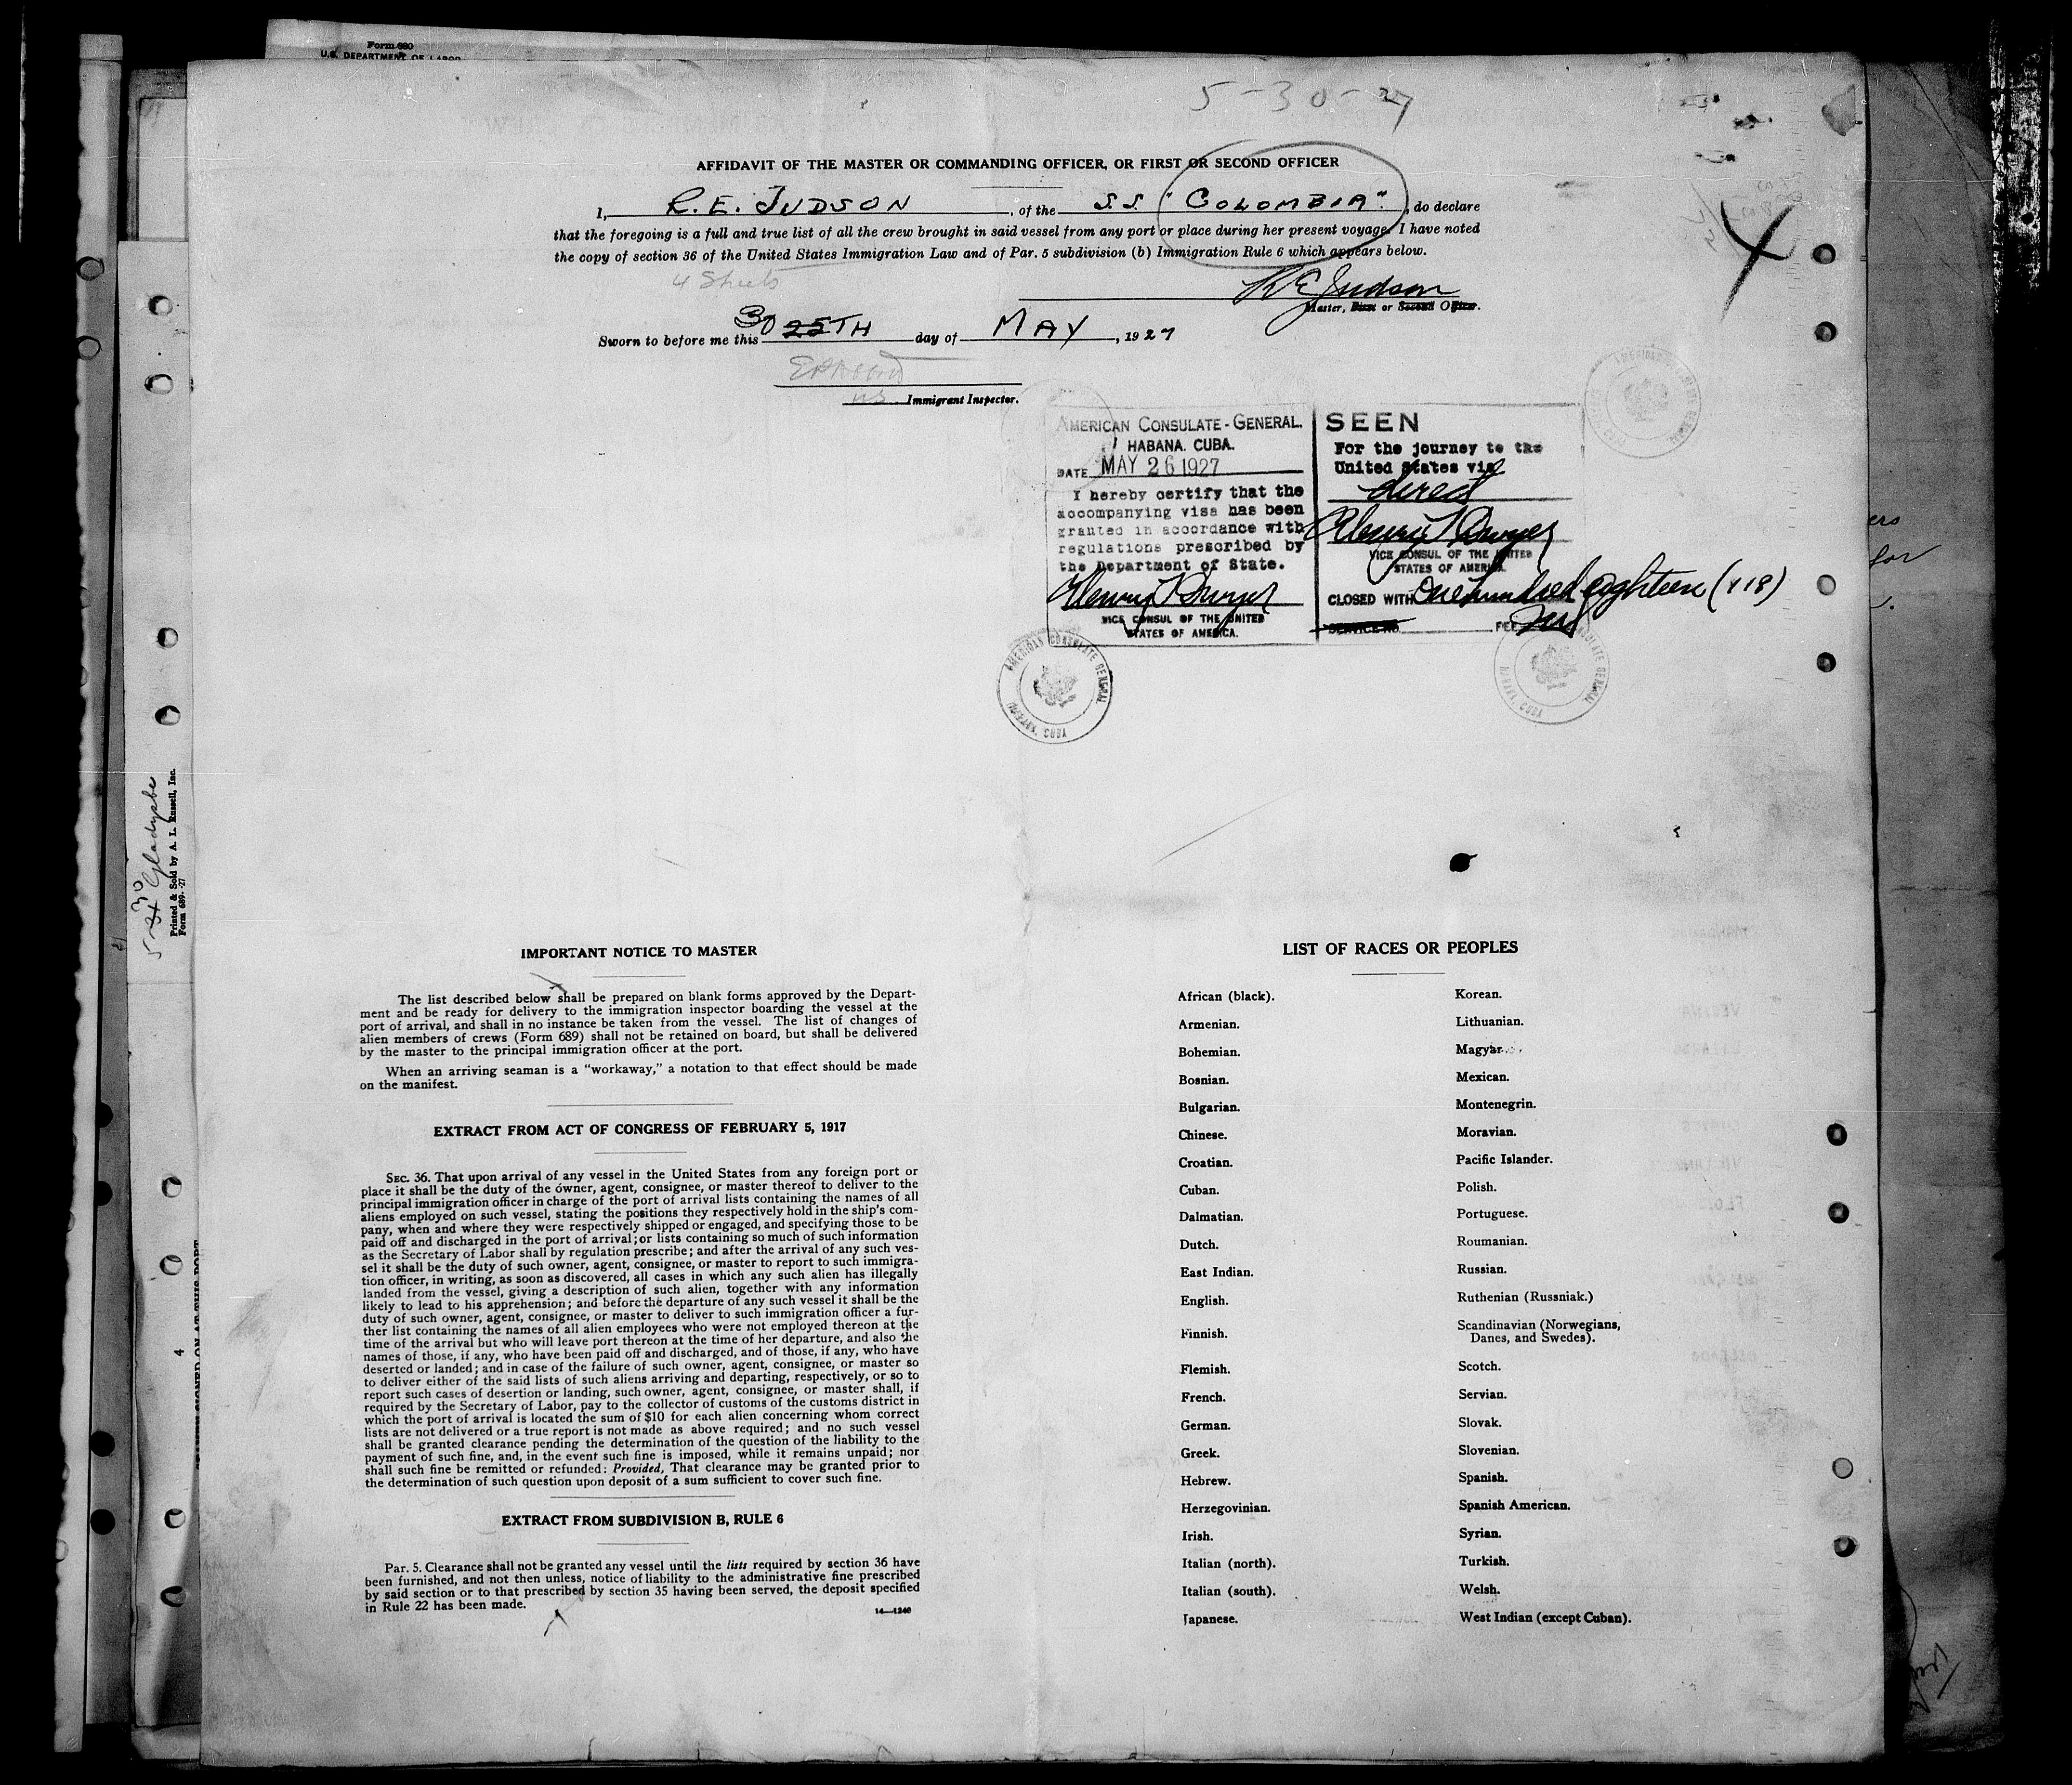 Form 680
U.S. DEPARTMENT OF LABOR
5-30-27
AFFIDAVIT OF THE MASTER OR COMMANDING OFFICER, OR FIRST OR SECOND OFFICER
I, R. E. JUDSON, of the S.S. "COLOMBIA", do declare
that the foregoing is a full and true list of all the crew brought in said vessel from any port or place during her present voyage. I have noted
the copy of section 36 of the United States Immigration Law and of Par. 5 subdivision (b) Immigration Rule 6 which appears below.
4 Sheets
R E Judson
Master, First or Second Officer.
Sworn to before me this 30 25TH day of MAY, 1927
Immigrant Inspector.
AMERICAN CONSULATE-GENERAL.
HABANA. CUBA.
DATE MAY 26 1927
I hereby certify that the
accompanying visa has been
granted in accordance with
regulations prescribed by
the Department of State.
VICE CONSUL OF THE UNITED
STATES OF AMERICA.
SEEN
For the journey to the
United States via
direct
VICE CONSUL OF THE UNITED
STATES OF AMERICA.
CLOSED WITH One hundred eighteen (118)
SERVICE NO. FEE
AMERICAN CONSULATE GENERAL
HABANA, CUBA
5 30 Gladysbe
Printed & Sold by A. L. Russell, Inc.
Form 689-27
4
ers
for
IMPORTANT NOTICE TO MASTER
The list described below shall be prepared on blank forms approved by the Depart-
ment and be ready for delivery to the immigration inspector boarding the vessel at the
port of arrival, and shall in no instance be taken from the vessel. The list of changes of
alien members of crews (Form 689) shall not be retained on board, but shall be delivered
by the master to the principal immigration officer at the port.
When an arriving seaman is a "workaway," a notation to that effect should be made
on the manifest.
EXTRACT FROM ACT OF CONGRESS OF FEBRUARY 5, 1917
SEC. 36. That upon arrival of any vessel in the United States from any foreign port or
place it shall be the duty of the owner, agent, consignee, or master thereof to deliver to the
principal immigration officer in charge of the port of arrival lists containing the names of all
aliens employed on such vessel, stating the positions they respectively hold in the ship's com-
pany, when and where they were respectively shipped or engaged, and specifying those to be
paid off and discharged in the port of arrival; or lists containing so much of such information
as the Secretary of Labor shall by regulation prescribe; and after the arrival of any such ves-
sel it shall be the duty of such owner, agent, consignee, or master to report to such immigra-
tion officer, in writing, as soon as discovered, all cases in which any such alien has illegally
landed from the vessel, giving a description of such alien, together with any information
likely to lead to his apprehension; and before the departure of any such vessel it shall be the
duty of such owner, agent, consignee, or master to deliver to such immigration officer a fur-
ther list containing the names of all alien employees who were not employed thereon at the
time of the arrival but who will leave port thereon at the time of her departure, and also the
names of those, if any, who have been paid off and discharged, and of those, if any, who have
deserted or landed; and in case of the failure of such owner, agent, consignee, or master so
to deliver either of the said lists of such aliens arriving and departing, respectively, or so to
report such cases of desertion or landing, such owner, agent, consignee, or master shall, if
required by the Secretary of Labor, pay to the collector of customs of the customs district in
which the port of arrival is located the sum of $10 for each alien concerning whom correct
lists are not delivered or a true report is not made as above required; and no such vessel
shall be granted clearance pending the determination of the question of the liability to the
payment of such fine, and, in the event such fine is imposed, while it remains unpaid; nor
shall such fine be remitted or refunded: Provided, That clearance may be granted prior to
the determination of such question upon deposit of a sum sufficient to cover such fine.
EXTRACT FROM SUBDIVISION B, RULE 6
Par. 5. Clearance shall not be granted any vessel until the lists required by section 36 have
been furnished, and not then unless, notice of liability to the administrative fine prescribed
by said section or to that prescribed by section 35 having been served, the deposit specified
in Rule 22 has been made.
14—1240
LIST OF RACES OR PEOPLES
African (black).
Armenian.
Bohemian.
Bosnian.
Bulgarian.
Chinese.
Croatian.
Cuban.
Dalmatian.
Dutch.
East Indian.
English.
Finnish.
Flemish.
French.
German.
Greek.
Hebrew.
Herzegovinian.
Irish.
Italian (north).
Italian (south).
Japanese.
Korean.
Lithuanian.
Magyar.
Mexican.
Montenegrin.
Moravian.
Pacific Islander.
Polish.
Portuguese.
Roumanian.
Russian.
Ruthenian (Russniak.)
Scandinavian (Norwegians,
Danes, and Swedes).
Scotch.
Servian.
Slovak.
Slovenian.
Spanish.
Spanish American.
Syrian.
Turkish.
Welsh.
West Indian (except Cuban).